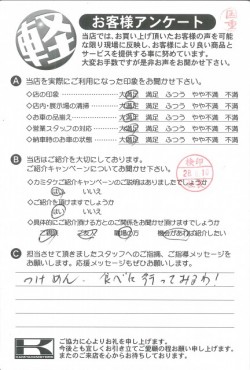 軽
お客様アンケート
当店では、お買い上げ頂いたお客様の声を可能
な限り現場に反映し、お客様により良い商品と
サービスを提供する事に努めています。
大変お手数ですが是非お声をお聞かせ下さい。
A 当店を実際にご利用になった印象をお聞かせ下さい。
◇店の印象 大満足 満足 ふつう やや不満 不満
◇店内・展示場の清掃 大満足 満足 ふつう やや不満 不満
◇お車の品揃え 大満足 満足 ふつう やや不満 不満
◇営業スタッフの対応 大満足 満足 ふつう やや不満 不満
◇納車時のお車の状態 大満足 満足 ふつう やや不満 不満
B 当店はご紹介を大切にしております。
ご紹介キャンペーンについてお聞かせ下さい。
◇カミタケご紹介キャンペーンのご説明はありましたでしょうか
はい いいえ
◇ご紹介を頂けますでしょうか
はい いいえ
◇具体的にご紹介頂ける方とのご関係をお聞かせ頂けますでしょうか
ご親戚 ご友人 職場の方 機会があれば紹介したい
C 担当させて頂きましたスタッフへのご指摘、ご指導メッセージを
お願いします。応援メッセージもぜひお願いします。
つけめん、食べに行ってみるわ!
K
ご協力に心よりお礼を申し上げます。
今後とも宜しくお引き立てご愛顧の程お願い申し上げます。
またのご来店を心からお待ちしております。